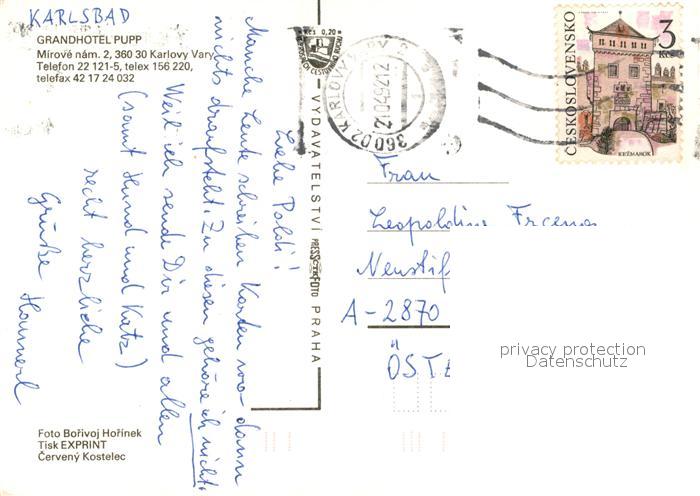 KARLSBAD
GRANDHOTEL PUPP
Mírové nám. 2, 360 30 Karlovy Vary
Telefon 22 121-5, telex 156 220,
telefax 42 17 24 032
Liebe Poldi!
Manche Leute schreiben Karten wo- dann
nichts draufsteht. Zu diesen gehöre ich nicht.
Weil ich sende Dir und allen
(samt Hund und Katz)
recht herzliche
Grüße Hannerl
Foto Bořivoj Hořínek
Tisk EXPRINT
Červený Kostelec
VYDAVATELSTVÍ PRESSFOTO PRAHA
Kčs 0,20
360 02 KARLOVY VARY 2
ČESKOSLOVENSKO
3 Kčs
KEŽMAROK
Frau
Leopoldine
Neustif
A-2870
ÖST
privacy protection
Datenschutz